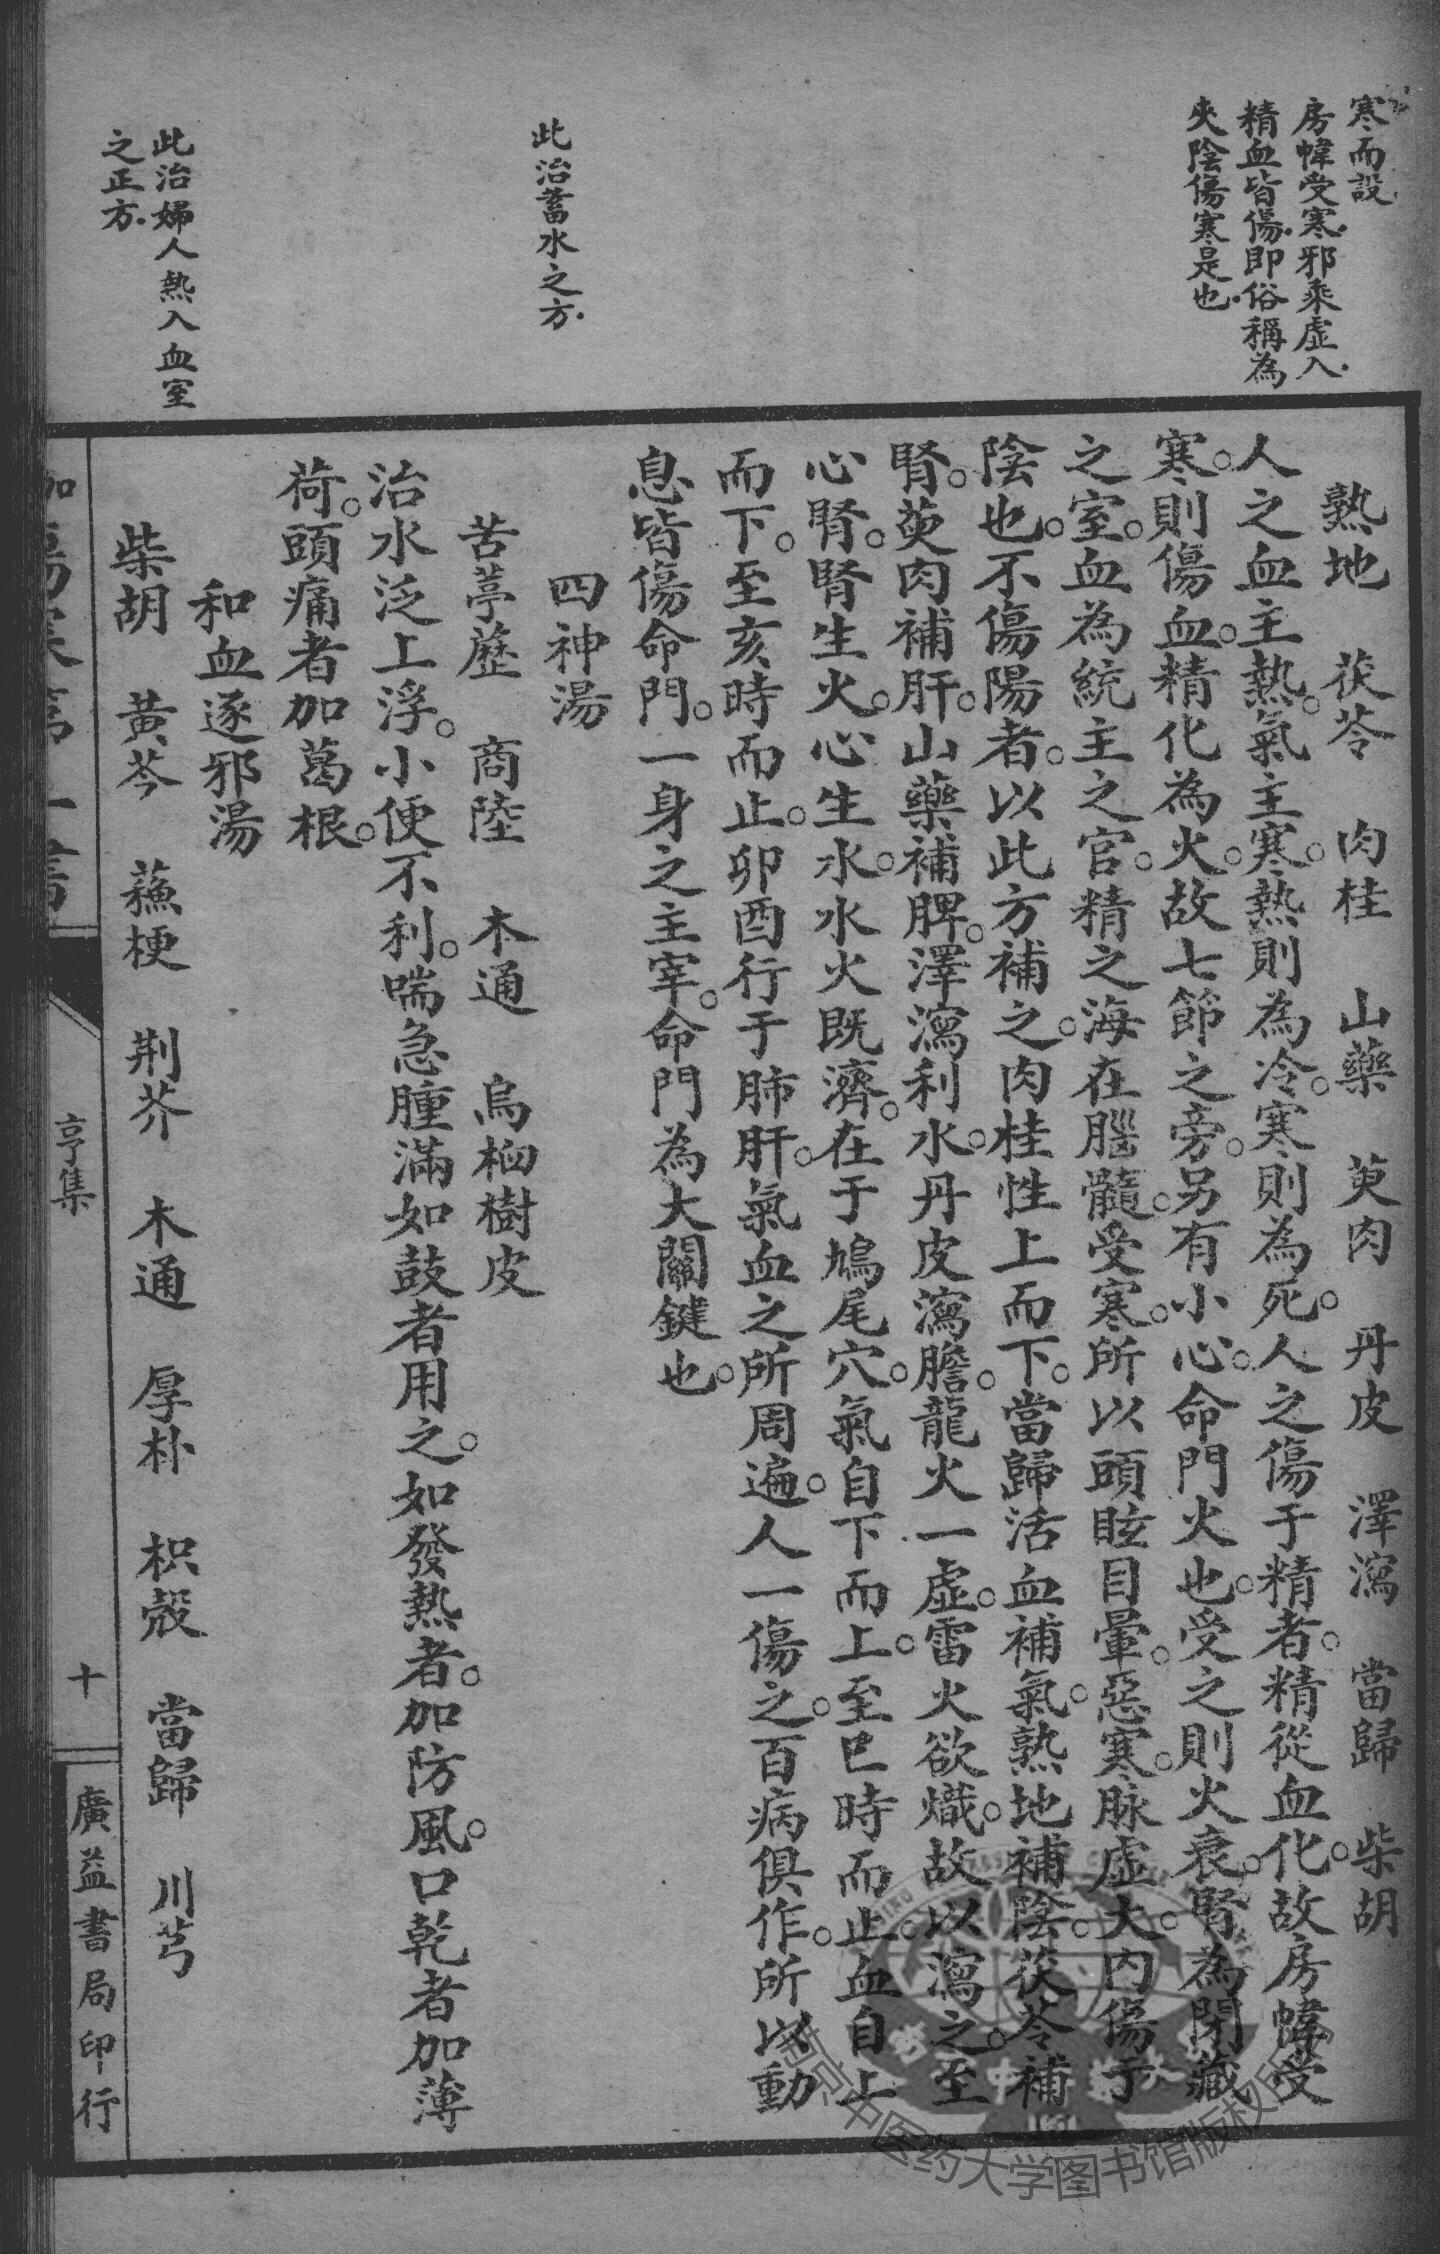 寒而設
房幃受寒。邪乘虛入。
精血皆傷。即俗稱為
夾陰傷寒是也。
此治蓄水之方。
此治婦人熱入血室
之正方。
熟地　茯苓　肉桂　山藥　萸肉　丹皮　澤瀉　當歸　柴胡
人之血主熱。氣主寒。熱則為冷。寒則為死。人之傷于精者。精從血化。故房幃受
寒。則傷血。精化為火。故七節之旁。另有小心。命門火也。受之則火衰。腎為閉藏
之室。血為統主之官。精之海在腦髓。受寒。所以頭眩目暈。惡寒。脉虛大。內傷于
陰也。不傷陽者。以此方補之。肉桂性上而下。當歸活血補氣。熟地補陰。茯苓補
腎。萸肉補肝。山藥補脾。澤瀉利水。丹皮瀉膽。龍火一虛。雷火欲熾。故以瀉之。至
心腎。腎生火。心生水。水火既濟。在于鳩尾穴。氣自下而上。至巳時而止。血自上
而下。至亥時而止。卯酉行于肺肝。氣血之所周遍。人一傷之。百病俱作。所以動
息皆傷命門。一身之主宰。命門為大關鍵也。
四神湯
苦葶藶　商陸　木通　烏桕樹皮
治水泛上浮。小便不利。喘急腫滿如鼓者用之。如發熱者。加防風。口乾者加薄
荷。頭痛者加葛根。
和血逐邪湯
柴胡　黃芩　蘓梗　荆芥　木通　厚朴　枳殼　當歸　川芎
亨集
十
廣益書局印行
南京中医药大学图书馆版权所有